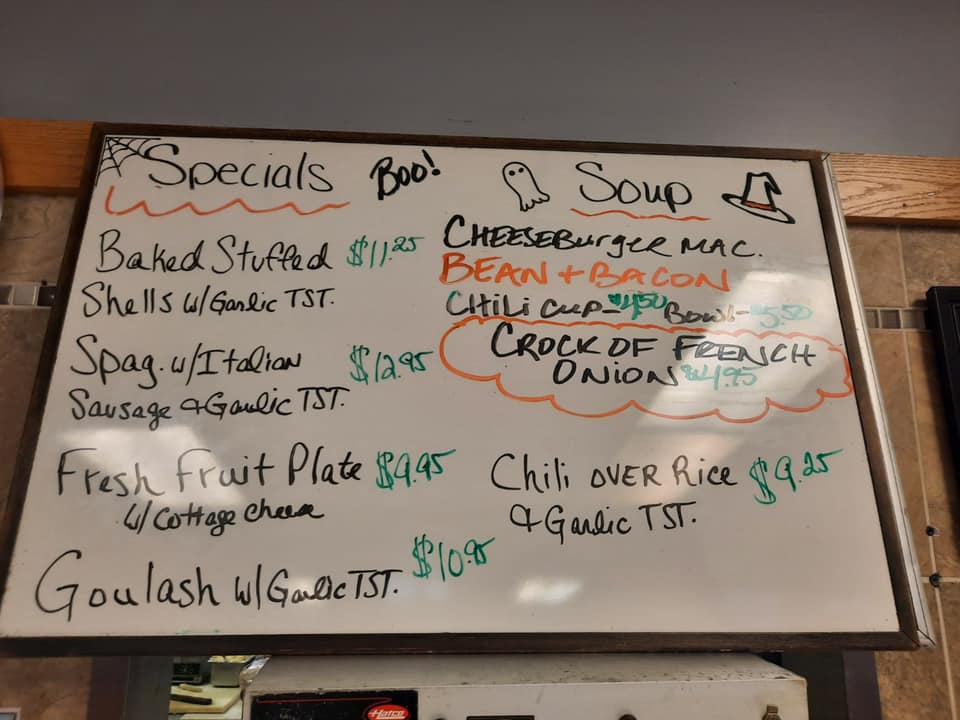 Specials
Boo!
Baked Stuffed $11.25
Shells w/ Garlic TST.
Spag. w/ Italian $12.95
Sausage & Garlic TST.
Fresh Fruit Plate $9.95
w/ Cottage cheese
Goulash w/ Garlic TST. $10.95
Soup
CHEESEBurgeR MAC.
BEAN + BACON
CHiLi Cup - $4.50 Bowl - $5.50
CROCK OF FRENCH
ONION $4.95
Chili OVER Rice $9.25
& Garlic TST.
Hatco